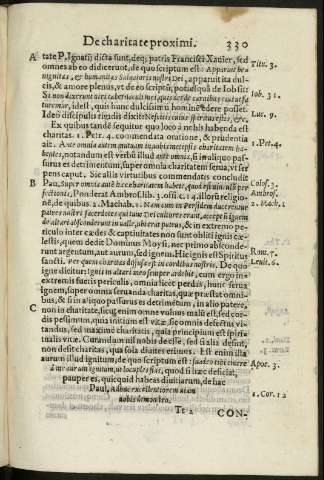 De charitate proximi. 330
A tate P. Ignatij dicta sunt, deq; patris Francisci Xauier, sed Titu. 3.
omnes ab eo didicerunt, de quo scriptum est: Apparuit be-
nignitas, & humanitas Saluatoris nostri Dei, apparuit ita dul-
cis, & amore plenus, vt de eo scriptũ, potiusquã de Iob sit: Iob. 31.
Si non dixerunt viri tabernaculi mei, quis det de carnibus eius vt sa-
turemur, idest, quis hunc dulcissimũ hominẽ edere posset. Luc. 9.
Ideo discipulis rigidis dixit: Nescitis cuius spiritus estis, &c.
Ex quibus tandẽ sequitur quo loco nobis habenda est
charitas. 1. Petr. 4. commendata oratione, & prudentia 1. Pet. 4.
ait. Ante omnia autem mutuam in vobismetipsis charitatem ha-
bentes, notandum est verbũ illud ante omnia, si in aliquo pas-
surus es detrimentum, super omnia charitatem serua, vt ser-
pens caput. Sic alijs virtutibus commendatis concludit
B Paul. Super omnia autẽ hæc charitatem habete, quod est vinculũ per- Colos. 3.
fectionis, Ponderat Ambros. lib. 3. offic. c. 14. illorũ religio- Ambros.
nẽ, de quibus. 2. Machab. 1. Nam cum in Persidem ducerentur 2. Mach. 1
patres nostri sacerdotes qui tunc Dei cultores erant, acceptũ ignem
de altari absconderunt in valle, vbi erat puteus, & in extremo pe-
riculo inter cædes & captiuitates non sunt obliti ignis cæ-
lestis; quem dedit Dominus Moysi, nec primo absconde-
runt argentum, aut aurum, sed ignem. Hic ignis est Spiritus Rom. 5.
sancti. Per quem charitas diffusa est in cordibus nostris. De quo Leuit. 6.
igne dicitur: Ignis in altari meo semper ardebit, cum ergo in
extremis fueris periculis, omnia licet perdas, hunc serua
ignem, super omnia seruanda charitas, quæ præstat omni-
bus, & si in aliquo passurus es detrimentum, in alio patere,
C non in charitate, sicut enim omne vulnus malũ est, sed cor-
dis pessimum, quia initium est vitæ, sic omnis defectus vi-
tandus, sed maximè charitatis, quia principium est spiri-
tualis vitæ. Curandum nil nobis deesse, sed si alia desint,
non desit charitas, qua sola diuites erimus. Est enim illa
aurum illud ignitum, de quo scriptum est: suadeo tibi emere Apoc. 3.
à me aurum ignitum, vt locuples fias, quod si hæc deficiat,
pauper es, quicquid habeas diuitiarum, de hac
Paul. Adhuc excellentiorem viam 1. Cor. 12
nobis demonstro.
Tt 2 CON-